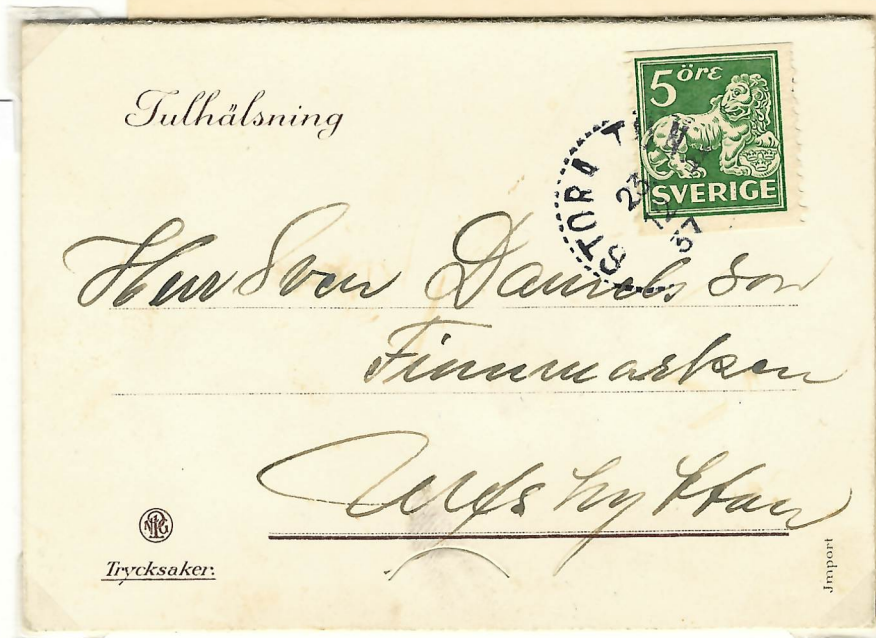 Julhälsning
5 öre
SVERIGE
STORA TUNA
23
12
37
Herr Sven Danielsson
Finnmarken
Ulfshyttan
Trycksaker.
Import